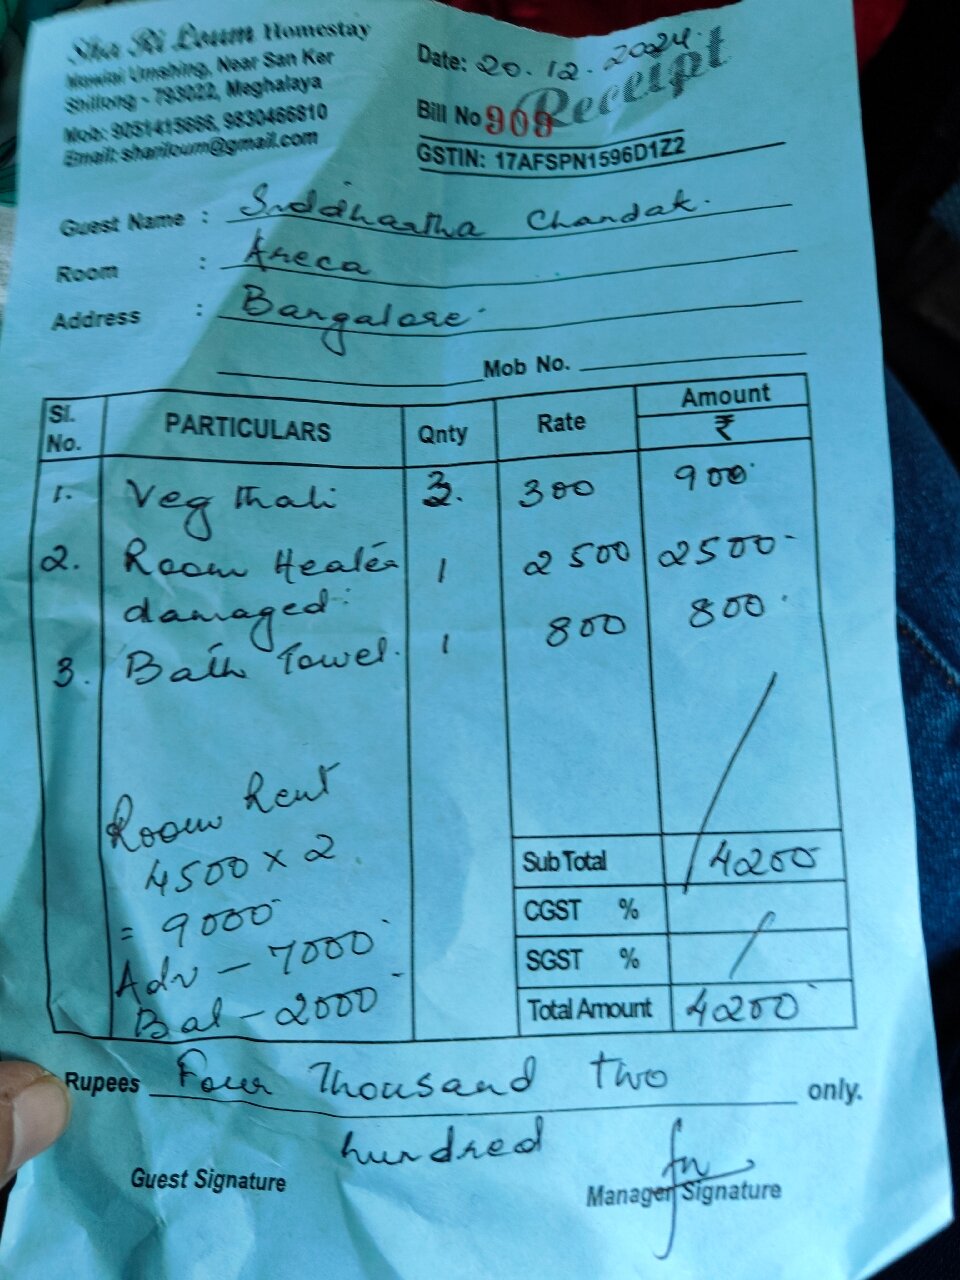 Sha Ri Loum Homestay
Mawlai Umshing, Near San Ker
Shillong - 793022, Meghalaya
Mob: 9051415666, 9830466810
Email: shariloum@gmail.com
Date: 20.12.2024.
Receipt
Bill No 909
GSTIN: 17AFSPN1596D1Z2
Guest Name : Siddhartha Chandak.
Room : Areca
Address : Bangalore.
Mob No.
Sl. No. PARTICULARS Qnty Rate Amount ₹
1. Veg Thali 3. 300 900
2. Room Heater 1 2500 2500-
damaged.
3. Bath Towel. 1 800 800
Room Rent
4500 x 2
= 9000
Adv - 7000
Bal - 2000
Sub Total 4200
CGST %
SGST %
Total Amount 4200
Rupees Four Thousand Two only.
hundred
Guest Signature
Manager Signature